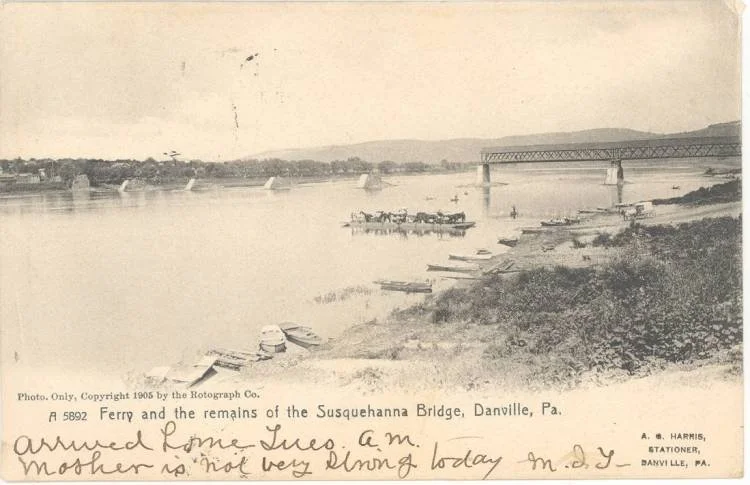 Photo. Only, Copyright 1905 by the Rotograph Co.
A 5892 Ferry and the remains of the Susquehanna Bridge, Danville, Pa.
Arrived home Tues. a.m.
Mother is not very strong today
A. S. HARRIS,
STATIONER,
DANVILLE, PA.